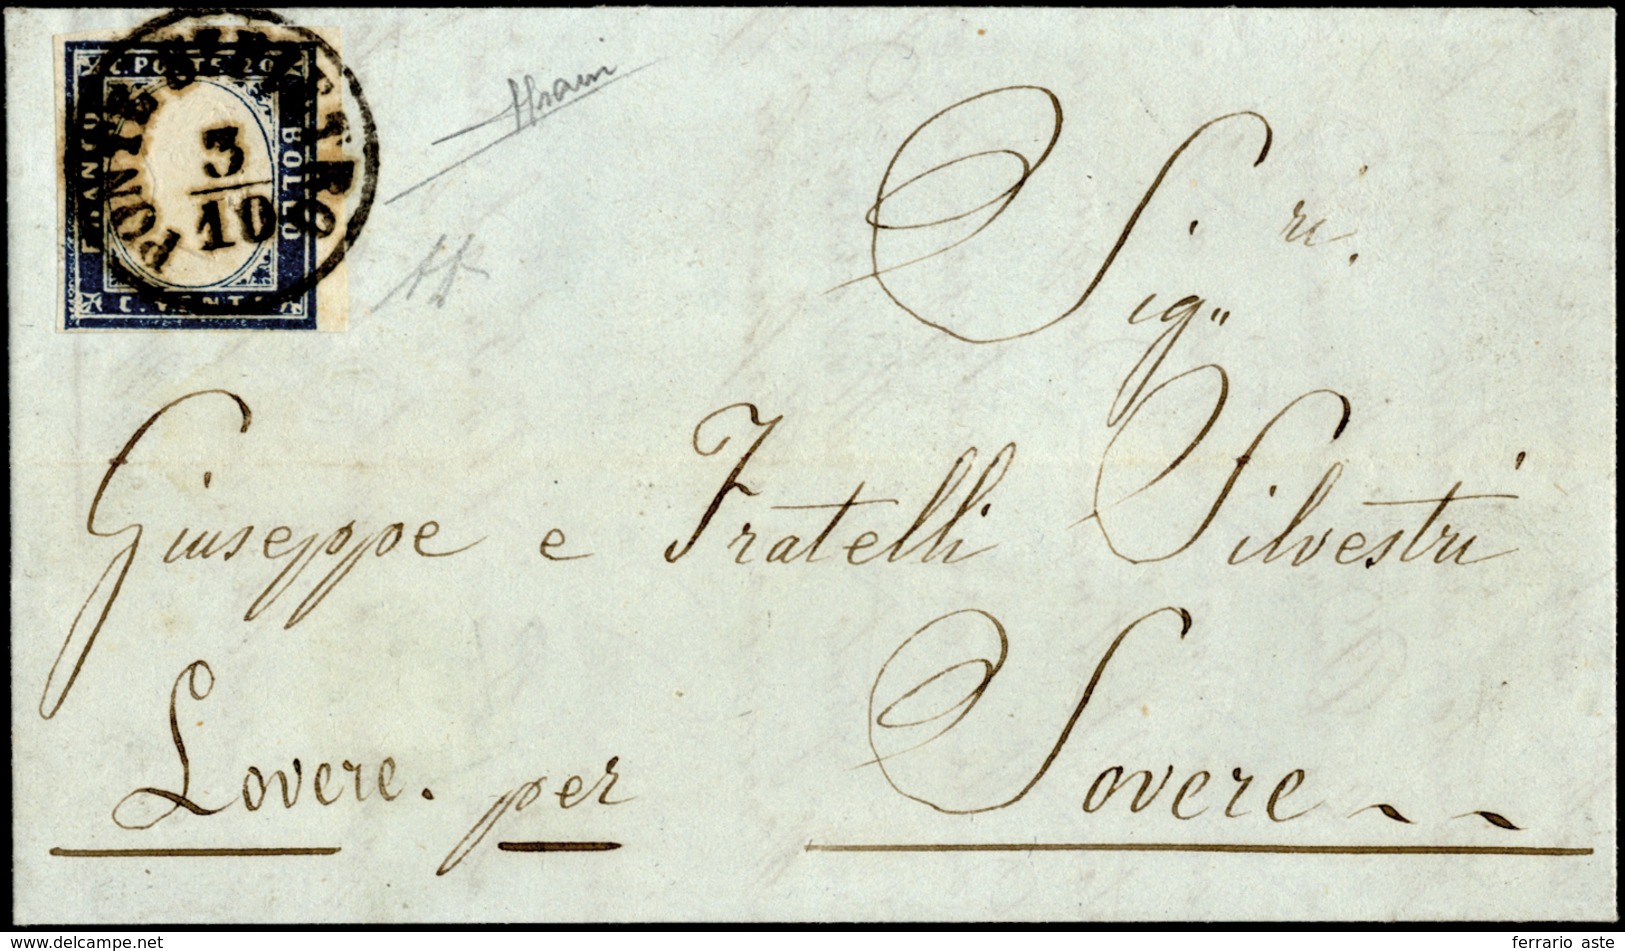 C. POSTE 20
FRANCO
BOLLO
C. VENTI
PONTE S. PIETRO
3
10
Sig.ri
Giuseppe e Fratelli Silvestri
Lovere. per Sovere
www.delcampe.net
ferrario aste